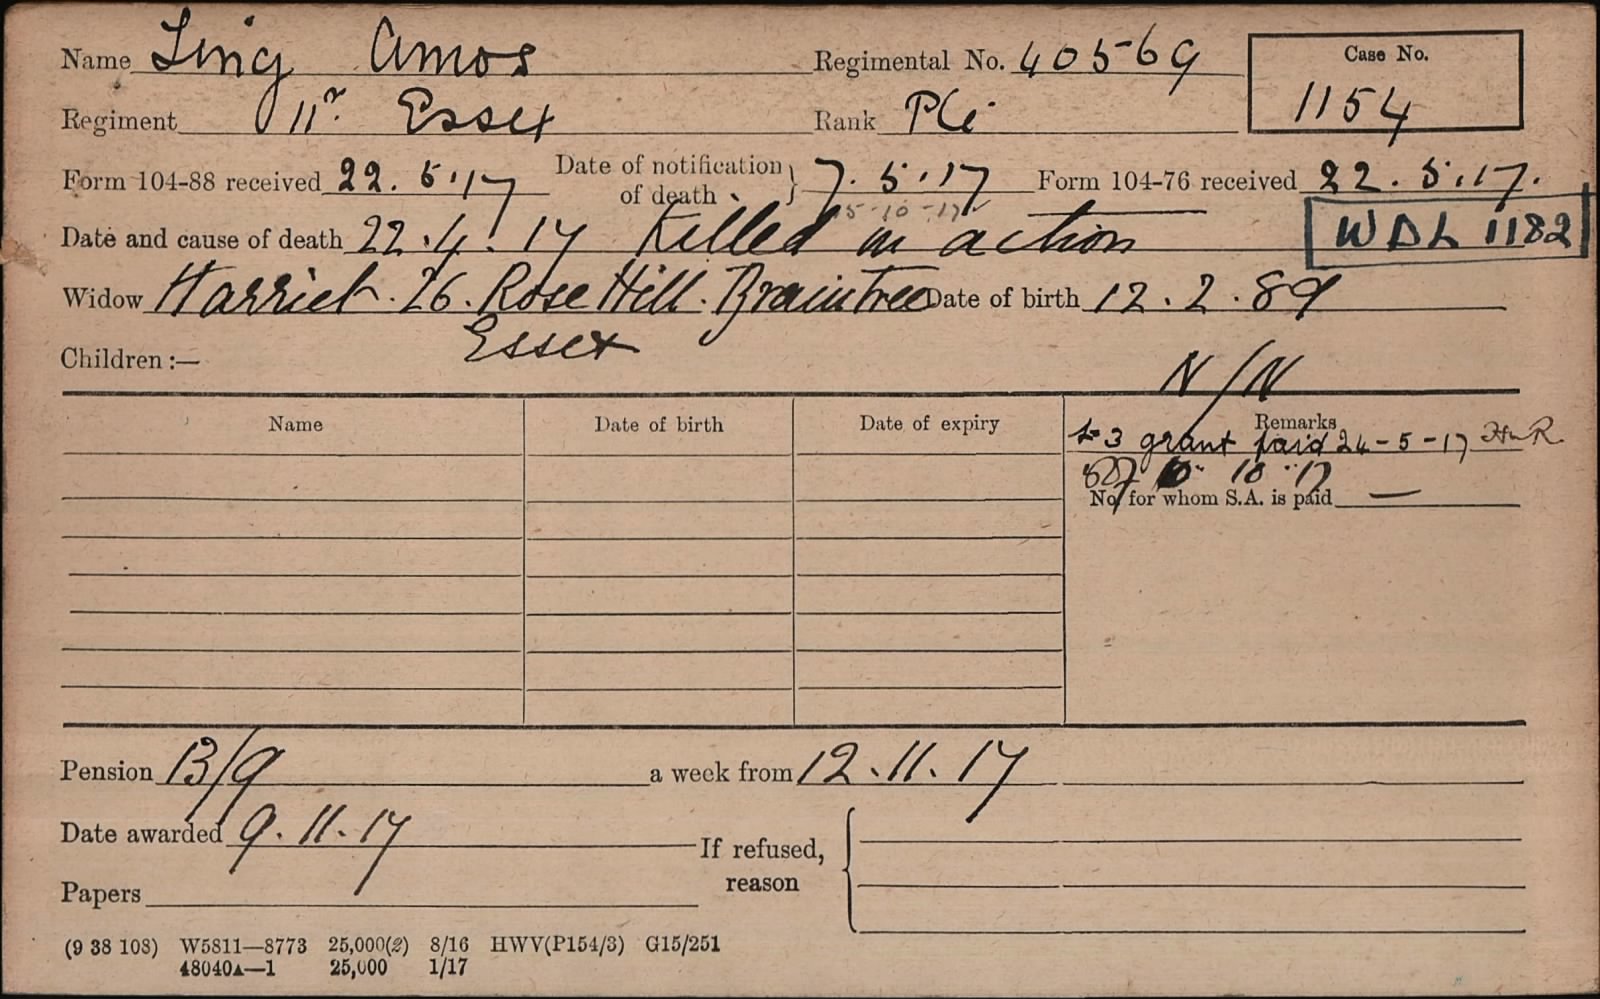 Name Ling Amos Regimental No. 40569 Case No.
1154
Regiment 11 Essex Rank Pte
Form 104-88 received 22.5.17 Date of notification of death 7.5.17 Form 104-76 received 22.5.17.
5-10-17
Date and cause of death 22.4.17 Killed in action WDL 1182
Widow Harriet. 26. Rose Hill. Braintree Date of birth 12.2.89
Essex
Children :—
N/N
Name Date of birth Date of expiry Remarks
£3 grant paid 24-5-17
10 17
No. for whom S.A. is paid —
Pension 13/9 a week from 12.11.17
Date awarded 9.11.17
If refused, reason
Papers
(9 38 108) W5811—8773 25,000(2) 8/16 HWV(P154/3) G15/251
48040A—1 25,000 1/17